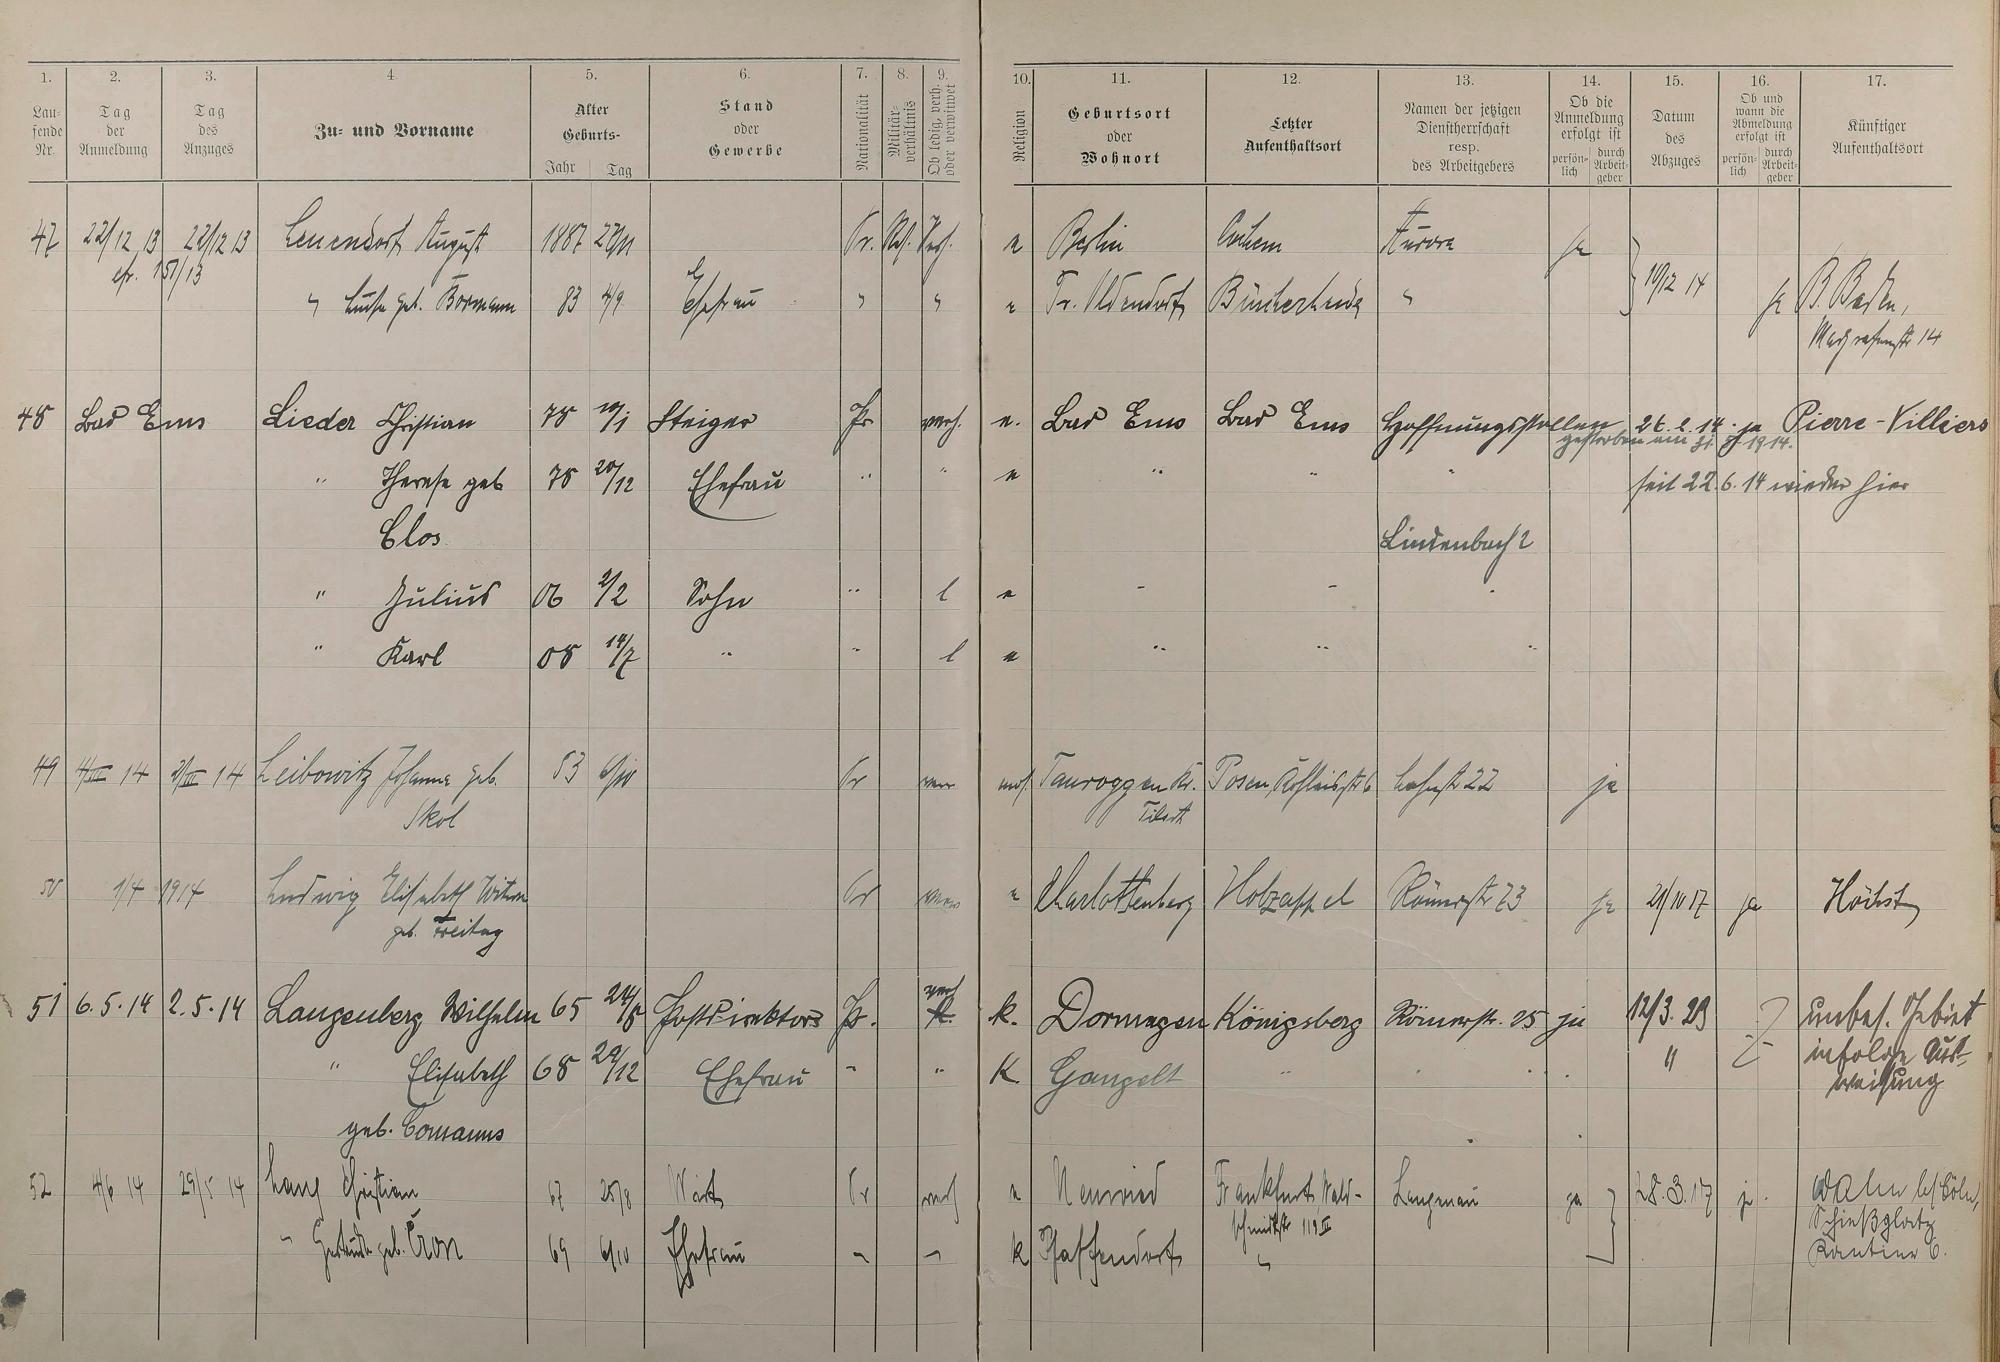 1. 2. 3. 4. 5. 6. 7. 8. 9. 10. 11. 12. 13. 14. 15. 16. 17.
Laufende Nr.
Tag der Anmeldung
Tag des Anzuges
Zu- und Vorname
Alter Geburts- Jahr Tag
Stand oder Gewerbe
Nationalität
Militärverhältnis
Ob ledig, verh. oder verwitwet
Religion
Geburtsort oder Wohnort
Letzter Aufenthaltsort
Namen der jetzigen Dienstherrschaft resp. des Arbeitgebers
Ob die Anmeldung erfolgt ist persönlich durch Arbeitgeber
Datum des Abzuges
Ob und wann die Abmeldung erfolgt ist persönlich durch Arbeitgeber
Künftiger Aufenthaltsort
47 22/12 13 22/12 13 August 1887 Pr. Verh. e Berlin Cochem Aurora ja
151/13
" Luise geb. Bormann 83 4/9 Ehefrau " " e Pr. Oldendorf " 10/12 14 ja B. Baden,
14
48 Bad Ems Lieder Christian 78 10/1 Steiger Pr verh. e. Bad Ems Bad Ems Hoffnungsstollen 26.2.14. ja Pierre-Villiers
gestorben am 1914.
" Therese geb 78 20/12 Ehefrau " " e " " " seit 22.6.14 wieder hier
Clos
Lindenbach 2
" Julius 06 2/2 Sohn " l e
" Karl 08 14/7 " " l e " " "
49 4/III 14 2/III 14 Leibowitz Johanna geb. 83 Pr mos. Tauroggen Kr. Posen 22 ja
Skol Tilsit
50 1/4 1914 Ludwig Elisabeth Witwe Pr e Charlottenberg Holzappel Römerstr 73 ja 21/10 17 ja Höchst
geb. Freitag
51 6.5.14 2.5.14 Langenberg Wilhelm 65 24/8 Postdirektor Pr. verh k. Dormagen Königsberg Römerstr. 25 ja 12/3. 23 unbes. Gebiet
" Elisabeth 68 29/12 Ehefrau " " K. Gangelt " " infolge Aus-
weisung
geb. Comanns
52 4/6 14 29/5 14 Lang Christian 67 25/8 Wirt Pr verh e Neuwied Frankfurt Wald- Langenau ja 28.3.17 ja. Wahn bei Cöln,
schmidtstr 119 II Schießplatz
" Gertrude geb. Cron 69 6/10 Ehefrau " " k Pfaffendorf " Kantine 6.